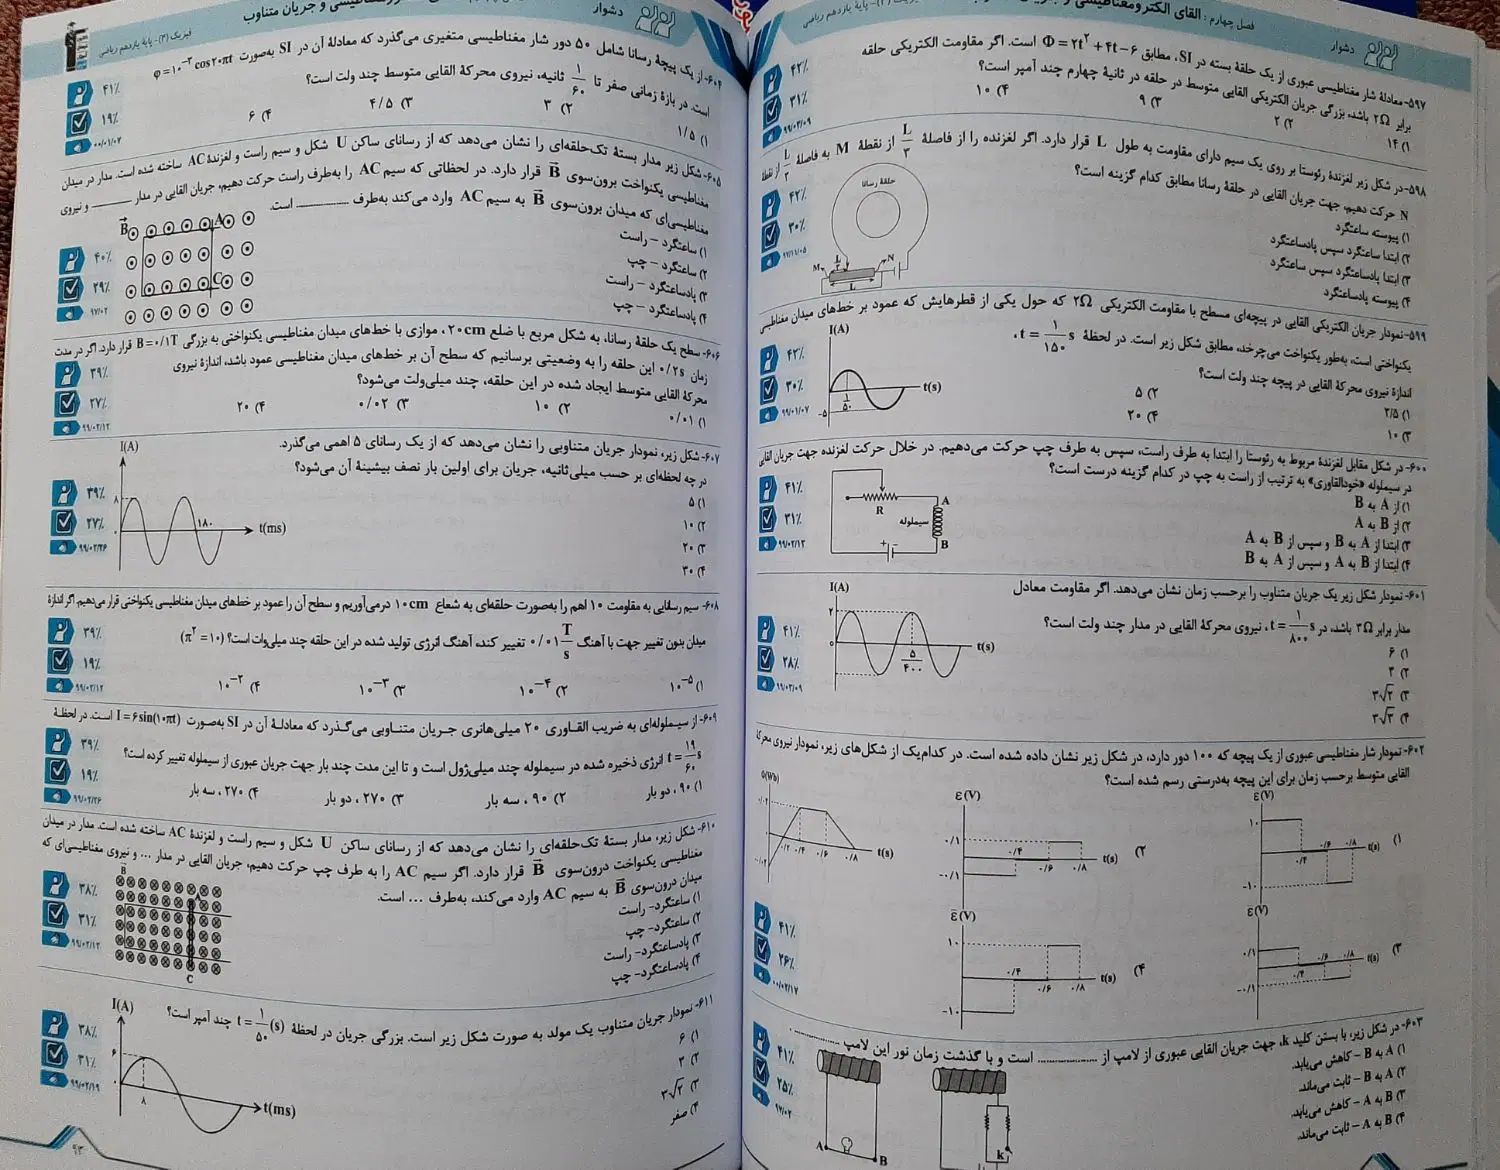 فصل چهارم : القای الکترومغناطیسی و
دشوار
۵۹۷- معادلهٔ شار مغناطیسی عبوری از یک حلقهٔ بسته در SI، مطابق Φ = ۲t² + ۴t − ۶ است. اگر مقاومت الکتریکی حلقه
برابر ۲Ω باشد، بزرگی جریان الکتریکی القایی متوسط در حلقه در ثانیهٔ چهارم چند آمپر است؟
۱) ۱۴
۲) ۲
۳) ۹
۴) ۱۰
۴۲٪
۳۱٪
۹۹/۰۳/۰۹
۵۹۸- در شکل زیر لغزندهٔ رئوستا بر روی یک سیم دارای مقاومت به طول L قرار دارد. اگر لغزنده را از فاصلهٔ L/۳ از نقطهٔ M به فاصلهٔ L/۲ از نقطهٔ
N حرکت دهیم، جهت جریان القایی در حلقه رسانا مطابق کدام گزینه است؟
۱) پیوسته ساعتگرد
۲) ابتدا ساعتگرد سپس پادساعتگرد
۳) ابتدا پادساعتگرد سپس ساعتگرد
۴) پیوسته پادساعتگرد
حلقهٔ رسانا
M
N
L
۴۲٪
۳۰٪
۹۷/۱۱/۰۵
۵۹۹- نمودار جریان الکتریکی القایی در پیچه‌ای مسطح با مقاومت الکتریکی ۲Ω که حول یکی از قطرهایش که عمود بر خط‌های میدان مغناطیسی
یکنواختی است، به‌طور یکنواخت می‌چرخد، مطابق شکل زیر است. در لحظهٔ t = ۱/۱۵۰ s،
اندازهٔ نیروی محرکهٔ القایی در پیچه چند ولت است؟
۱) ۲/۵
۲) ۵
۳) ۱۰
۴) ۲۰
I(A)
t(s)
۱/۵۰
-۵
۴۲٪
۳۰٪
۹۹/۰۱/۰۷
۶۰۰- در شکل مقابل لغزندهٔ مربوط به رئوستا را ابتدا به طرف راست، سپس به طرف چپ حرکت می‌دهیم. در خلال حرکت لغزنده جهت جریان القایی
در سیملوله «خودالقاوری» به ترتیب از راست به چپ در کدام گزینه درست است؟
۱) از A به B
۲) از B به A
۳) ابتدا از A به B و سپس از B به A
۴) ابتدا از B به A و سپس از A به B
R
A
سیملوله
B
۴۱٪
۳۱٪
۹۹/۰۲/۱۲
۶۰۱- نمودار شکل زیر یک جریان متناوب را برحسب زمان نشان می‌دهد. اگر مقاومت معادل
مدار برابر ۳Ω باشد، در t = ۱/۸۰۰ s، نیروی محرکهٔ القایی در مدار چند ولت است؟
۱) ۶
۲) ۳
۳) ۳√۲
۴) ۳√۳
I(A)
۲
۰
۵/۴۰۰
t(s)
۴۱٪
۲۸٪
۹۹/۰۳/۰۹
۶۰۲- نمودار شار مغناطیسی عبوری از یک پیچه که ۱۰۰ دور دارد، در شکل زیر نشان داده شده است. در کدام‌یک از شکل‌های زیر، نمودار نیروی محرکهٔ
القایی متوسط برحسب زمان برای این پیچه به‌درستی رسم شده است؟
t(s)
۰/۲ ۰/۴ ۰/۶ ۰/۸
۱) ε(V) ۱۰ -۱۰ ۰/۴ ۰/۶ ۰/۸ t(s)
۲) ε(V) ۰/۱ -۰/۱ ۰/۴ ۰/۶ ۰/۸ t(s)
۳) ε(V) ۰/۱ -۰/۱ ۰/۴ ۰/۶ ۰/۸ t(s)
۴) ε(V) ۱۰ -۱۰ ۰/۴ ۰/۶ ۰/۸ t(s)
۴۱٪
۲۶٪
۰۰/۰۲/۱۷
۶۰۳- در شکل زیر، با بستن کلید k، جهت جریان القایی عبوری از لامپ از ........ است و با گذشت زمان نور این لامپ ........ .
۱) A به B - کاهش می‌یابد.
۲) A به B - ثابت می‌ماند.
۳) B به A - کاهش می‌یابد.
۴) B به A - ثابت می‌ماند.
A
B
k
۴۱٪
۲۵٪
دشوار
فیزیک (۲)- پایهٔ یازدهم ریاضی
۶۰۴- از یک پیچهٔ رسانا شامل ۵۰ دور شار مغناطیسی متغیری می‌گذرد که معادلهٔ آن در SI به‌صورت φ = ۱۰⁻³ cos ۲۰πt
است. در بازهٔ زمانی صفر تا ۱/۶۰ ثانیه، نیروی محرکهٔ القایی متوسط چند ولت است؟
۱) ۱/۵
۲) ۳
۳) ۴/۵
۴) ۶
۴۱٪
۱۹٪
۰۰/۰۱/۰۷
۶۰۵- شکل زیر مدار بستهٔ تک‌حلقه‌ای را نشان می‌دهد که از رسانای ساکن U شکل و سیم راست و لغزندهٔ AC ساخته شده است. مدار در میدان
مغناطیسی یکنواخت برون‌سوی B قرار دارد. در لحظاتی که سیم AC را به‌طرف راست حرکت دهیم، جریان القایی در مدار ........ و نیروی
مغناطیسی‌ای که میدان برون‌سوی B به سیم AC وارد می‌کند به‌طرف ........ است.
۱) ساعتگرد - راست
۲) ساعتگرد - چپ
۳) پادساعتگرد - راست
۴) پادساعتگرد - چپ
B
A
C
۴۰٪
۲۹٪
۹۷/۰۲
۶۰۶- سطح یک حلقهٔ رسانا، به شکل مربع با ضلع ۲۰cm، موازی با خط‌های میدان مغناطیسی یکنواختی به بزرگی B = ۰/۱T قرار دارد. اگر در مدت
زمان ۰/۲s این حلقه را به وضعیتی برسانیم که سطح آن بر خط‌های میدان مغناطیسی عمود باشد، اندازهٔ نیروی
محرکهٔ القایی متوسط ایجاد شده در این حلقه، چند میلی‌ولت می‌شود؟
۱) ۰/۰۱
۲) ۱۰
۳) ۰/۰۲
۴) ۲۰
۳۹٪
۲۷٪
۹۹/۰۲/۱۲
۶۰۷- شکل زیر، نمودار جریان متناوبی را نشان می‌دهد که از یک رسانای ۵ اهمی می‌گذرد.
در چه لحظه‌ای بر حسب میلی‌ثانیه، جریان برای اولین بار نصف بیشینهٔ آن می‌شود؟
۱) ۵
۲) ۱۰
۳) ۲۰
۴) ۳۰
I(A)
۸
۰
۱۸۰
t(ms)
۳۹٪
۲۷٪
۹۹/۰۲/۲۶
۶۰۸- سیم رسانایی به مقاومت ۱۰ اهم را به‌صورت حلقه‌ای به شعاع ۱۰cm درمی‌آوریم و سطح آن را عمود بر خط‌های میدان مغناطیسی یکنواختی قرار می‌دهیم. اگر اندازهٔ
میدان بدون تغییر جهت با آهنگ ۰/۰۱ T/s تغییر کند، آهنگ انرژی تولید شده در این حلقه چند میلی‌وات است؟ (π² = ۱۰)
۱) ۱۰⁻⁵
۲) ۱۰⁻⁴
۳) ۱۰⁻³
۴) ۱۰⁻²
۳۹٪
۱۹٪
۹۹/۰۲/۱۲
۶۰۹- از سیملوله‌ای به ضریب القاوری ۲۰ میلی‌هانری جریان متناوبی می‌گذرد که معادلهٔ آن در SI به‌صورت I = ۶ sin(۱۰πt) است. در لحظهٔ
t = ۱۹/۶۰ s انرژی ذخیره شده در سیملوله چند میلی‌ژول است و تا این مدت چند بار جهت جریان عبوری از سیملوله تغییر کرده است؟
۱) ۹۰، دو بار
۲) ۹۰، سه بار
۳) ۲۷۰، دو بار
۴) ۲۷۰، سه بار
۳۹٪
۱۹٪
۹۹/۰۲/۲۶
۶۱۰- شکل زیر، مدار بستهٔ تک‌حلقه‌ای را نشان می‌دهد که از رسانای ساکن U شکل و سیم راست و لغزندهٔ AC ساخته شده است. مدار در میدان
مغناطیسی یکنواخت درون‌سوی B قرار دارد. اگر سیم AC را به طرف چپ حرکت دهیم، جریان القایی در مدار ... و نیروی مغناطیسی‌ای که
میدان درون‌سوی B به سیم AC وارد می‌کند، به‌طرف ... است.
۱) ساعتگرد- راست
۲) ساعتگرد- چپ
۳) پادساعتگرد- راست
۴) پادساعتگرد- چپ
B
A
C
۳۸٪
۳۱٪
۹۹/۰۲/۱۲
۶۱۱- نمودار جریان متناوب یک مولد به صورت شکل زیر است. بزرگی جریان در لحظهٔ t = ۱/۵۰ (s) چند آمپر است؟
۱) ۶
۲) ۳
۳) ۳√۲
۴) صفر
I(A)
۶
۰
۸
t(ms)
۳۸٪
۳۱٪
۹۹/۰۲/۱۹
۹۳